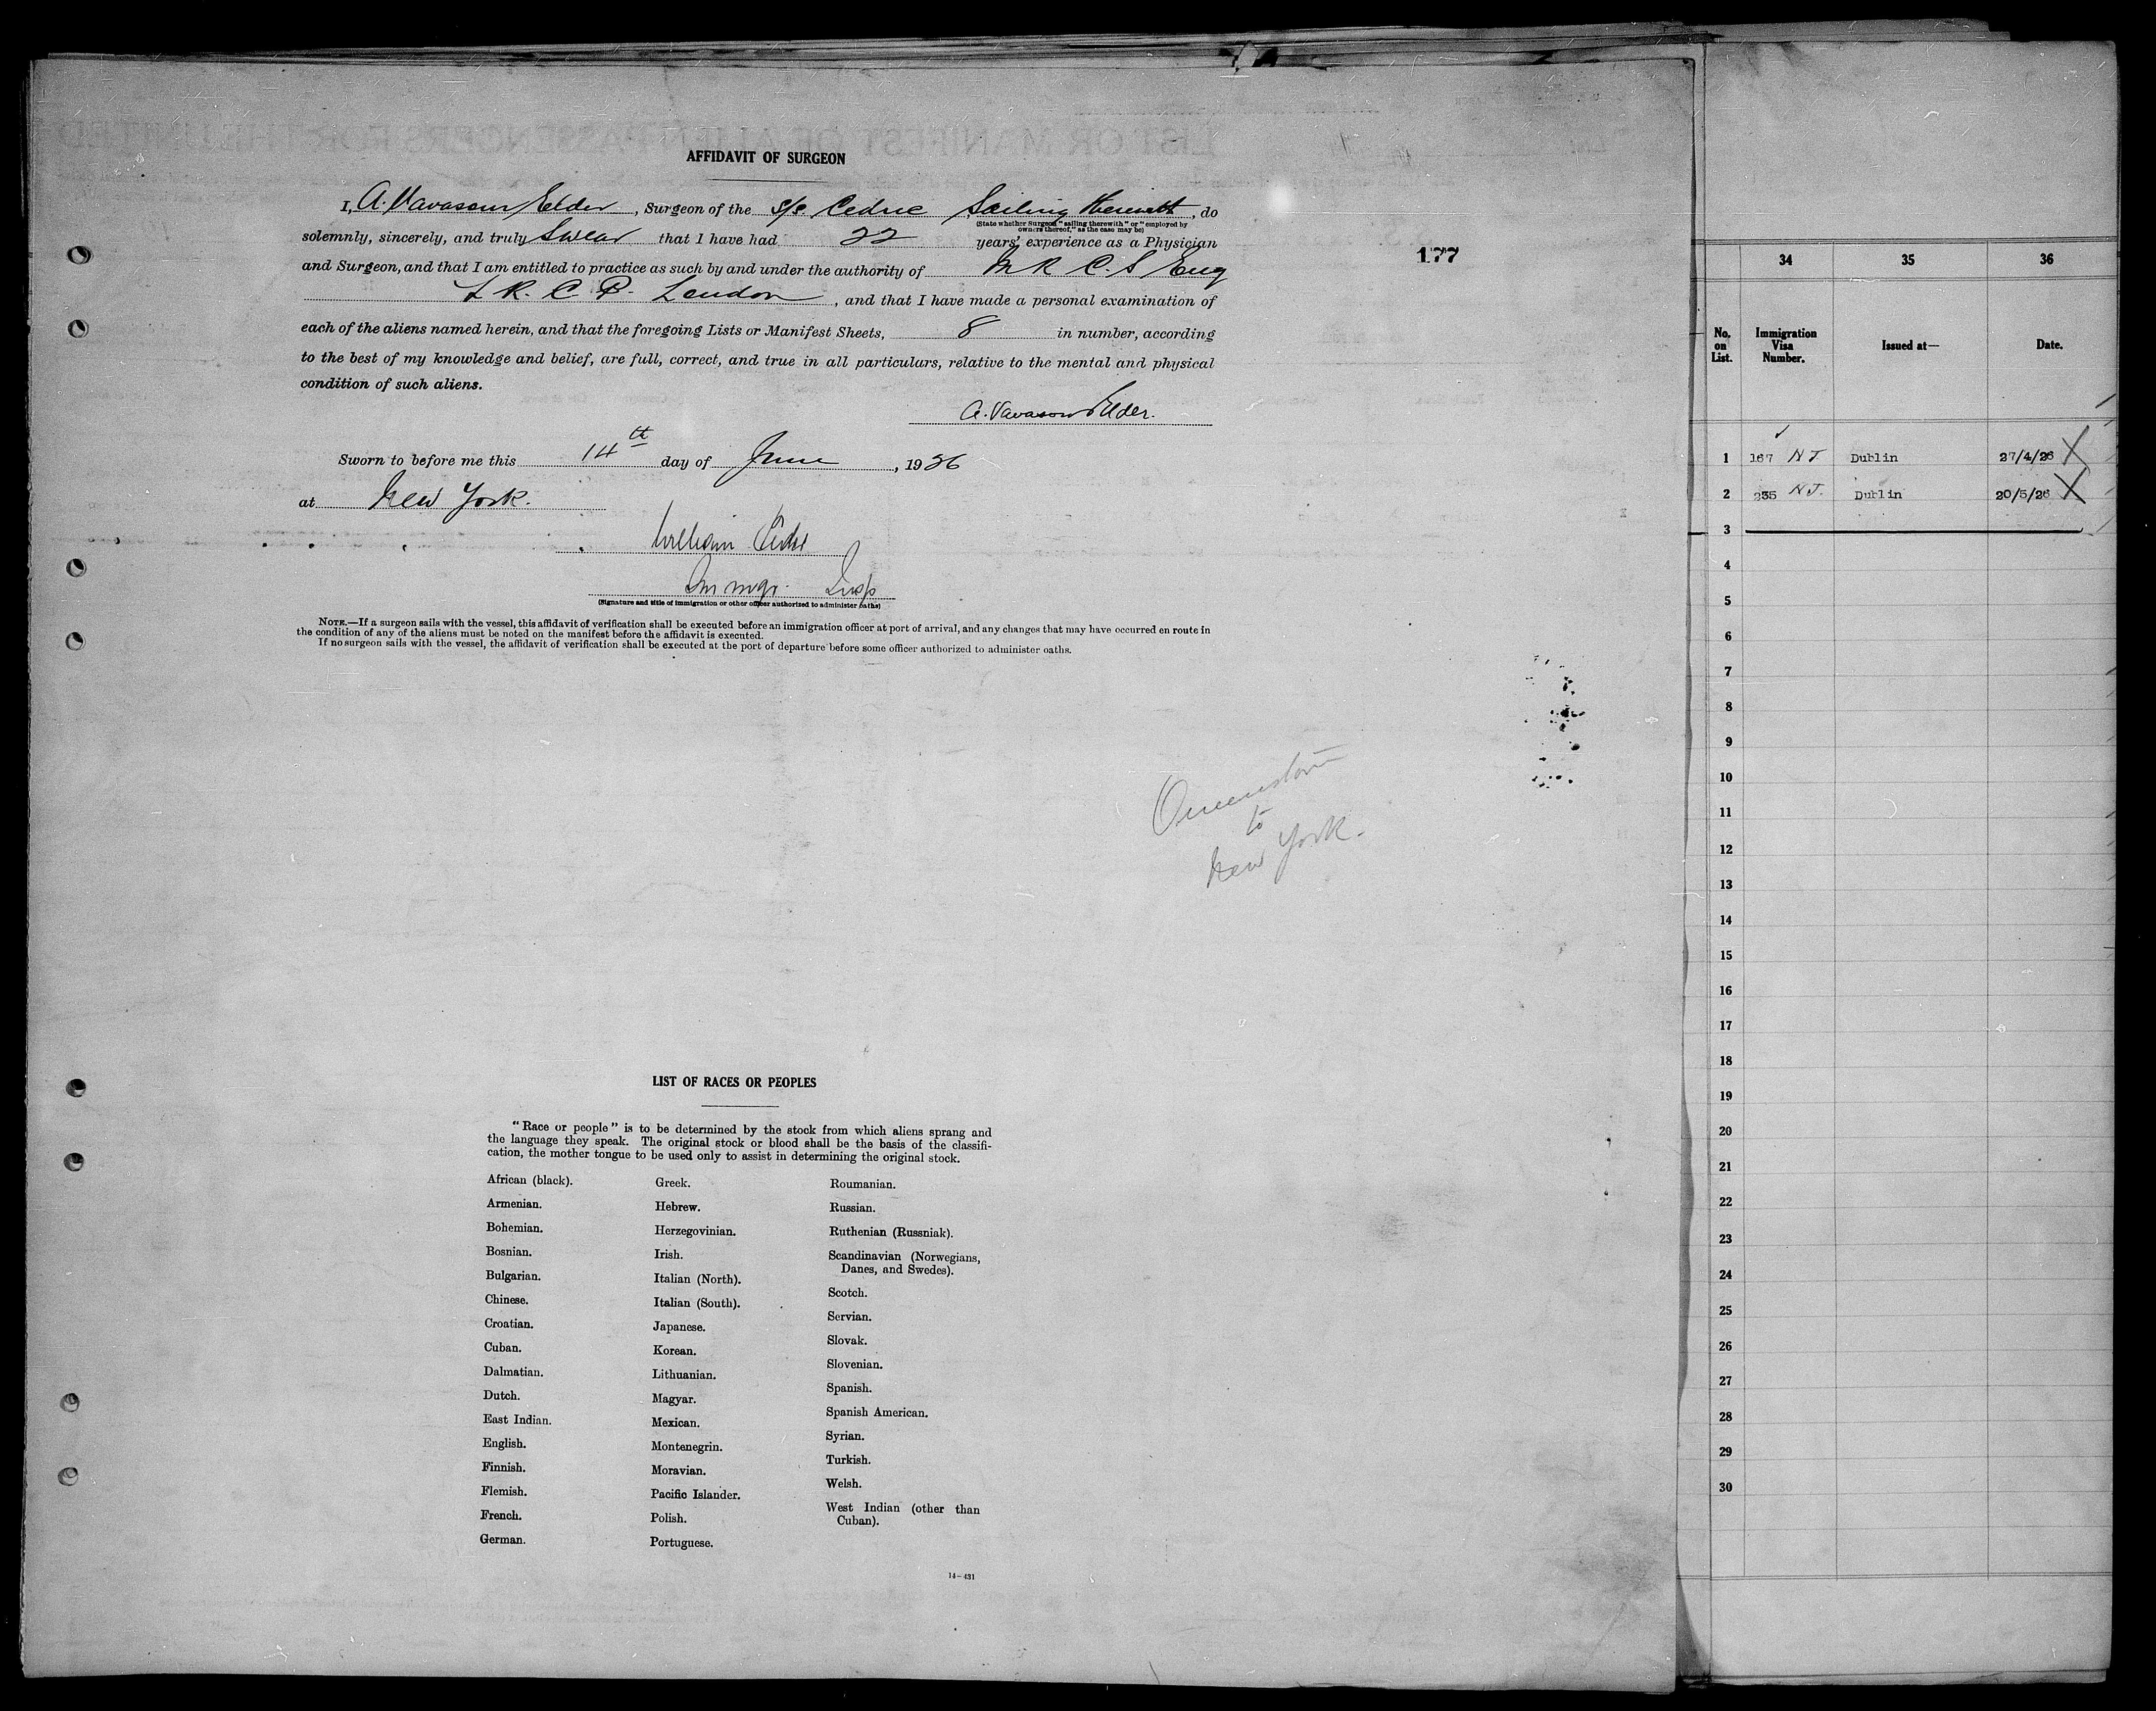 AFFIDAVIT OF SURGEON
I, A. Vavasour Elder, Surgeon of the s/s Cedric Sailing therewith, do
(State whether Surgeon "sailing therewith" or "employed by
owners thereof," as the case may be)
solemnly, sincerely, and truly Swear that I have had 22 years' experience as a Physician
and Surgeon, and that I am entitled to practice as such by and under the authority of M R C. S Eng
L R. C. P. London, and that I have made a personal examination of
each of the aliens named herein, and that the foregoing Lists or Manifest Sheets, 8 in number, according
to the best of my knowledge and belief, are full, correct, and true in all particulars, relative to the mental and physical
condition of such aliens.
A. Vavasour Elder.
Sworn to before me this 14th day of June, 1926
at New York.
William
Immgr. Insp
(Signature and title of immigration or other officer authorized to administer oaths)
NOTE.—If a surgeon sails with the vessel, this affidavit of verification shall be executed before an immigration officer at port of arrival, and any changes that may have occurred en route in
the condition of any of the aliens must be noted on the manifest before the affidavit is executed.
If no surgeon sails with the vessel, the affidavit of verification shall be executed at the port of departure before some officer authorized to administer oaths.
177
Queenstown
to
New York.
LIST OF RACES OR PEOPLES
"Race or people" is to be determined by the stock from which aliens sprang and
the language they speak. The original stock or blood shall be the basis of the classifi-
cation, the mother tongue to be used only to assist in determining the original stock.
African (black).
Armenian.
Bohemian.
Bosnian.
Bulgarian.
Chinese.
Croatian.
Cuban.
Dalmatian.
Dutch.
East Indian.
English.
Finnish.
Flemish.
French.
German.
Greek.
Hebrew.
Herzegovinian.
Irish.
Italian (North).
Italian (South).
Japanese.
Korean.
Lithuanian.
Magyar.
Mexican.
Montenegrin.
Moravian.
Pacific Islander.
Polish.
Portuguese.
Roumanian.
Russian.
Ruthenian (Russniak).
Scandinavian (Norwegians,
Danes, and Swedes).
Scotch.
Servian.
Slovak.
Slovenian.
Spanish.
Spanish American.
Syrian.
Turkish.
Welsh.
West Indian (other than
Cuban).
14—431
34 35 36
No. on List. Immigration Visa Number. Issued at— Date.
1 167 NJ Dublin 27/4/26 X
2 235 NJ. Dublin 20/5/26 X
3
4
5
6
7
8
9
10
11
12
13
14
15
16
17
18
19
20
21
22
23
24
25
26
27
28
29
30